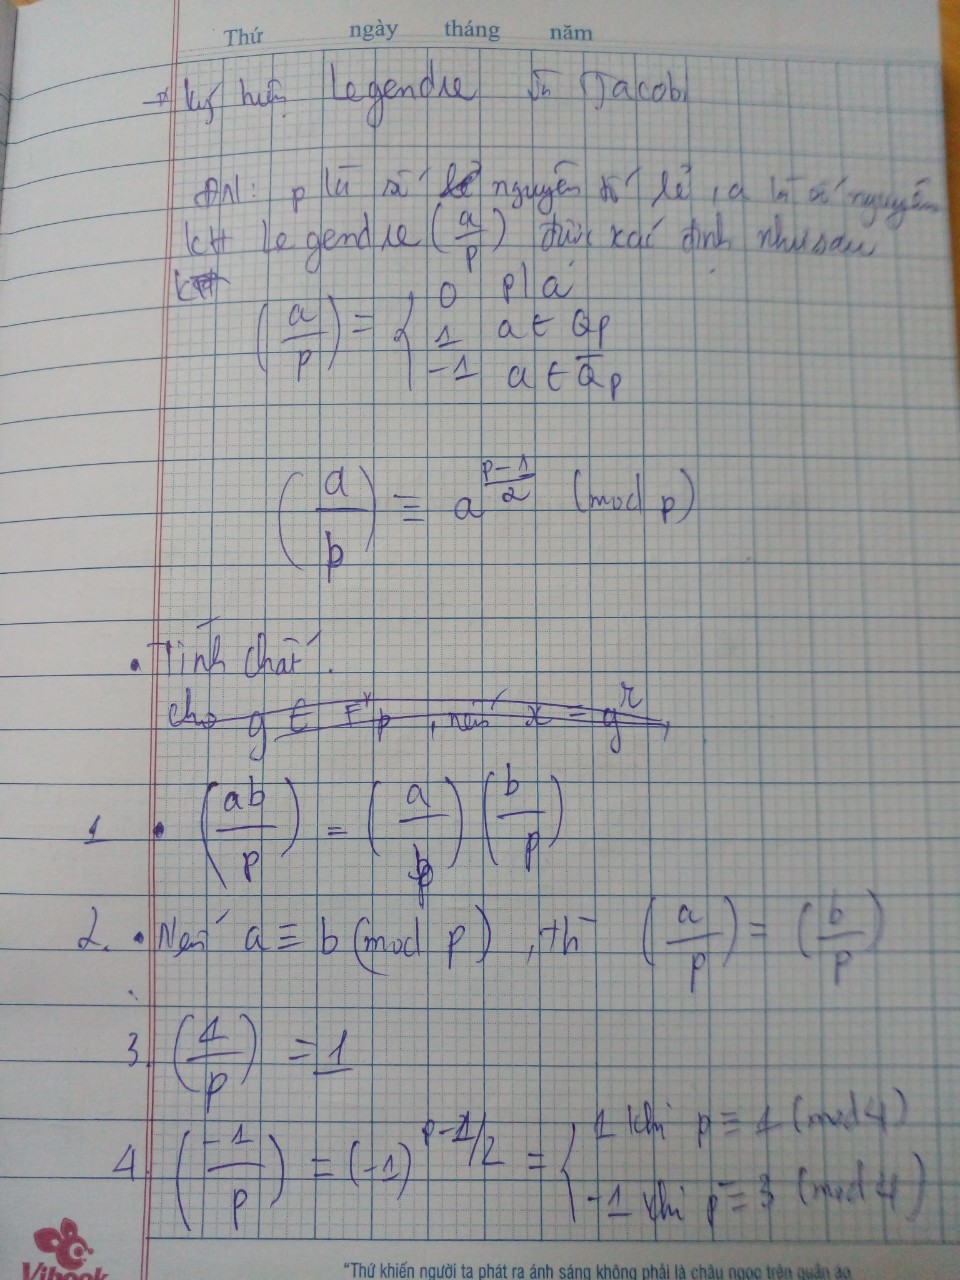 Thứ ngày tháng năm
→ Ký hiệu Legendre và Jacobi
ĐN: p là số nguyên tố lẻ, a là số nguyên
KH Legendre (a/p) được xác định như sau
(a/p) = { 0 p|a
1 a ∈ Qp
-1 a ∈ Q̅p
(a/p) ≡ a^((p-1)/2) (mod p)
• Tính chất.
cho g ∈ F*p, nếu x = g^r,
1 • (ab/p) = (a/p) (b/p)
2. • Nếu a ≡ b (mod p), thì (a/p) = (b/p)
3. (1/p) = 1
4. (-1/p) = (-1)^(p-1/2) = { 1 khi p ≡ 1 (mod 4)
-1 khi p ≡ 3 (mod 4)
Vibook
"Thứ khiến người ta phát ra ánh sáng không phải là châu ngọc trên quần áo